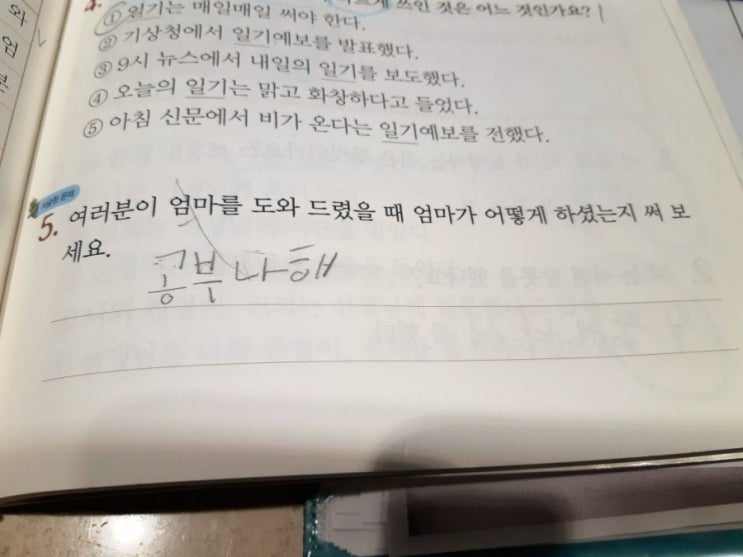 쓰인 것은 어느 것인가요?
① 일기는 매일매일 써야 한다.
② 기상청에서 일기예보를 발표했다.
③ 9시 뉴스에서 내일의 일기를 보도했다.
④ 오늘의 일기는 맑고 화창하다고 들었다.
⑤ 아침 신문에서 비가 온다는 일기예보를 전했다.
서술형 문제
5. 여러분이 엄마를 도와 드렸을 때 엄마가 어떻게 하셨는지 써 보
세요.
공부나해